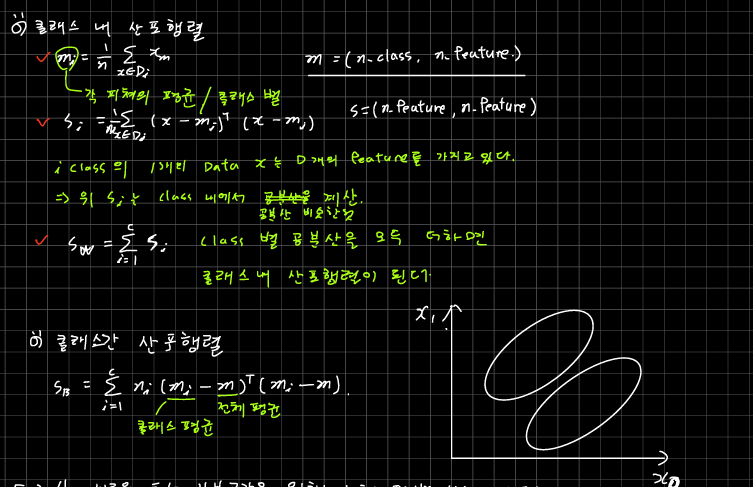 ii) 클래스 내 산포행렬
m_i = 1/n Σ_{x∈D_i} x_m
m = (n_class, n_feature)
각 피쳐의 평균 / 클래스 별
s = (n_feature, n_feature)
S_i = 1/n Σ_{x∈D_i} (x - m_i)^T (x - m_i)
i class의 1개의 Data x는 D개의 feature를 가지고 있다.
⇒ 위 S_i는 class 내에서 공분산을 계산.
공분산 비슷한것
S_W = Σ_{i=1}^{c} S_i
class 별 공분산을 모두 더하면
클래스 내 산포행렬이 된다.
클래스간 산포행렬
S_B = Σ_{i=1}^{c} n_i (m_i - m)^T (m_i - m).
클래스 평균
전체 평균
x_1
x_0